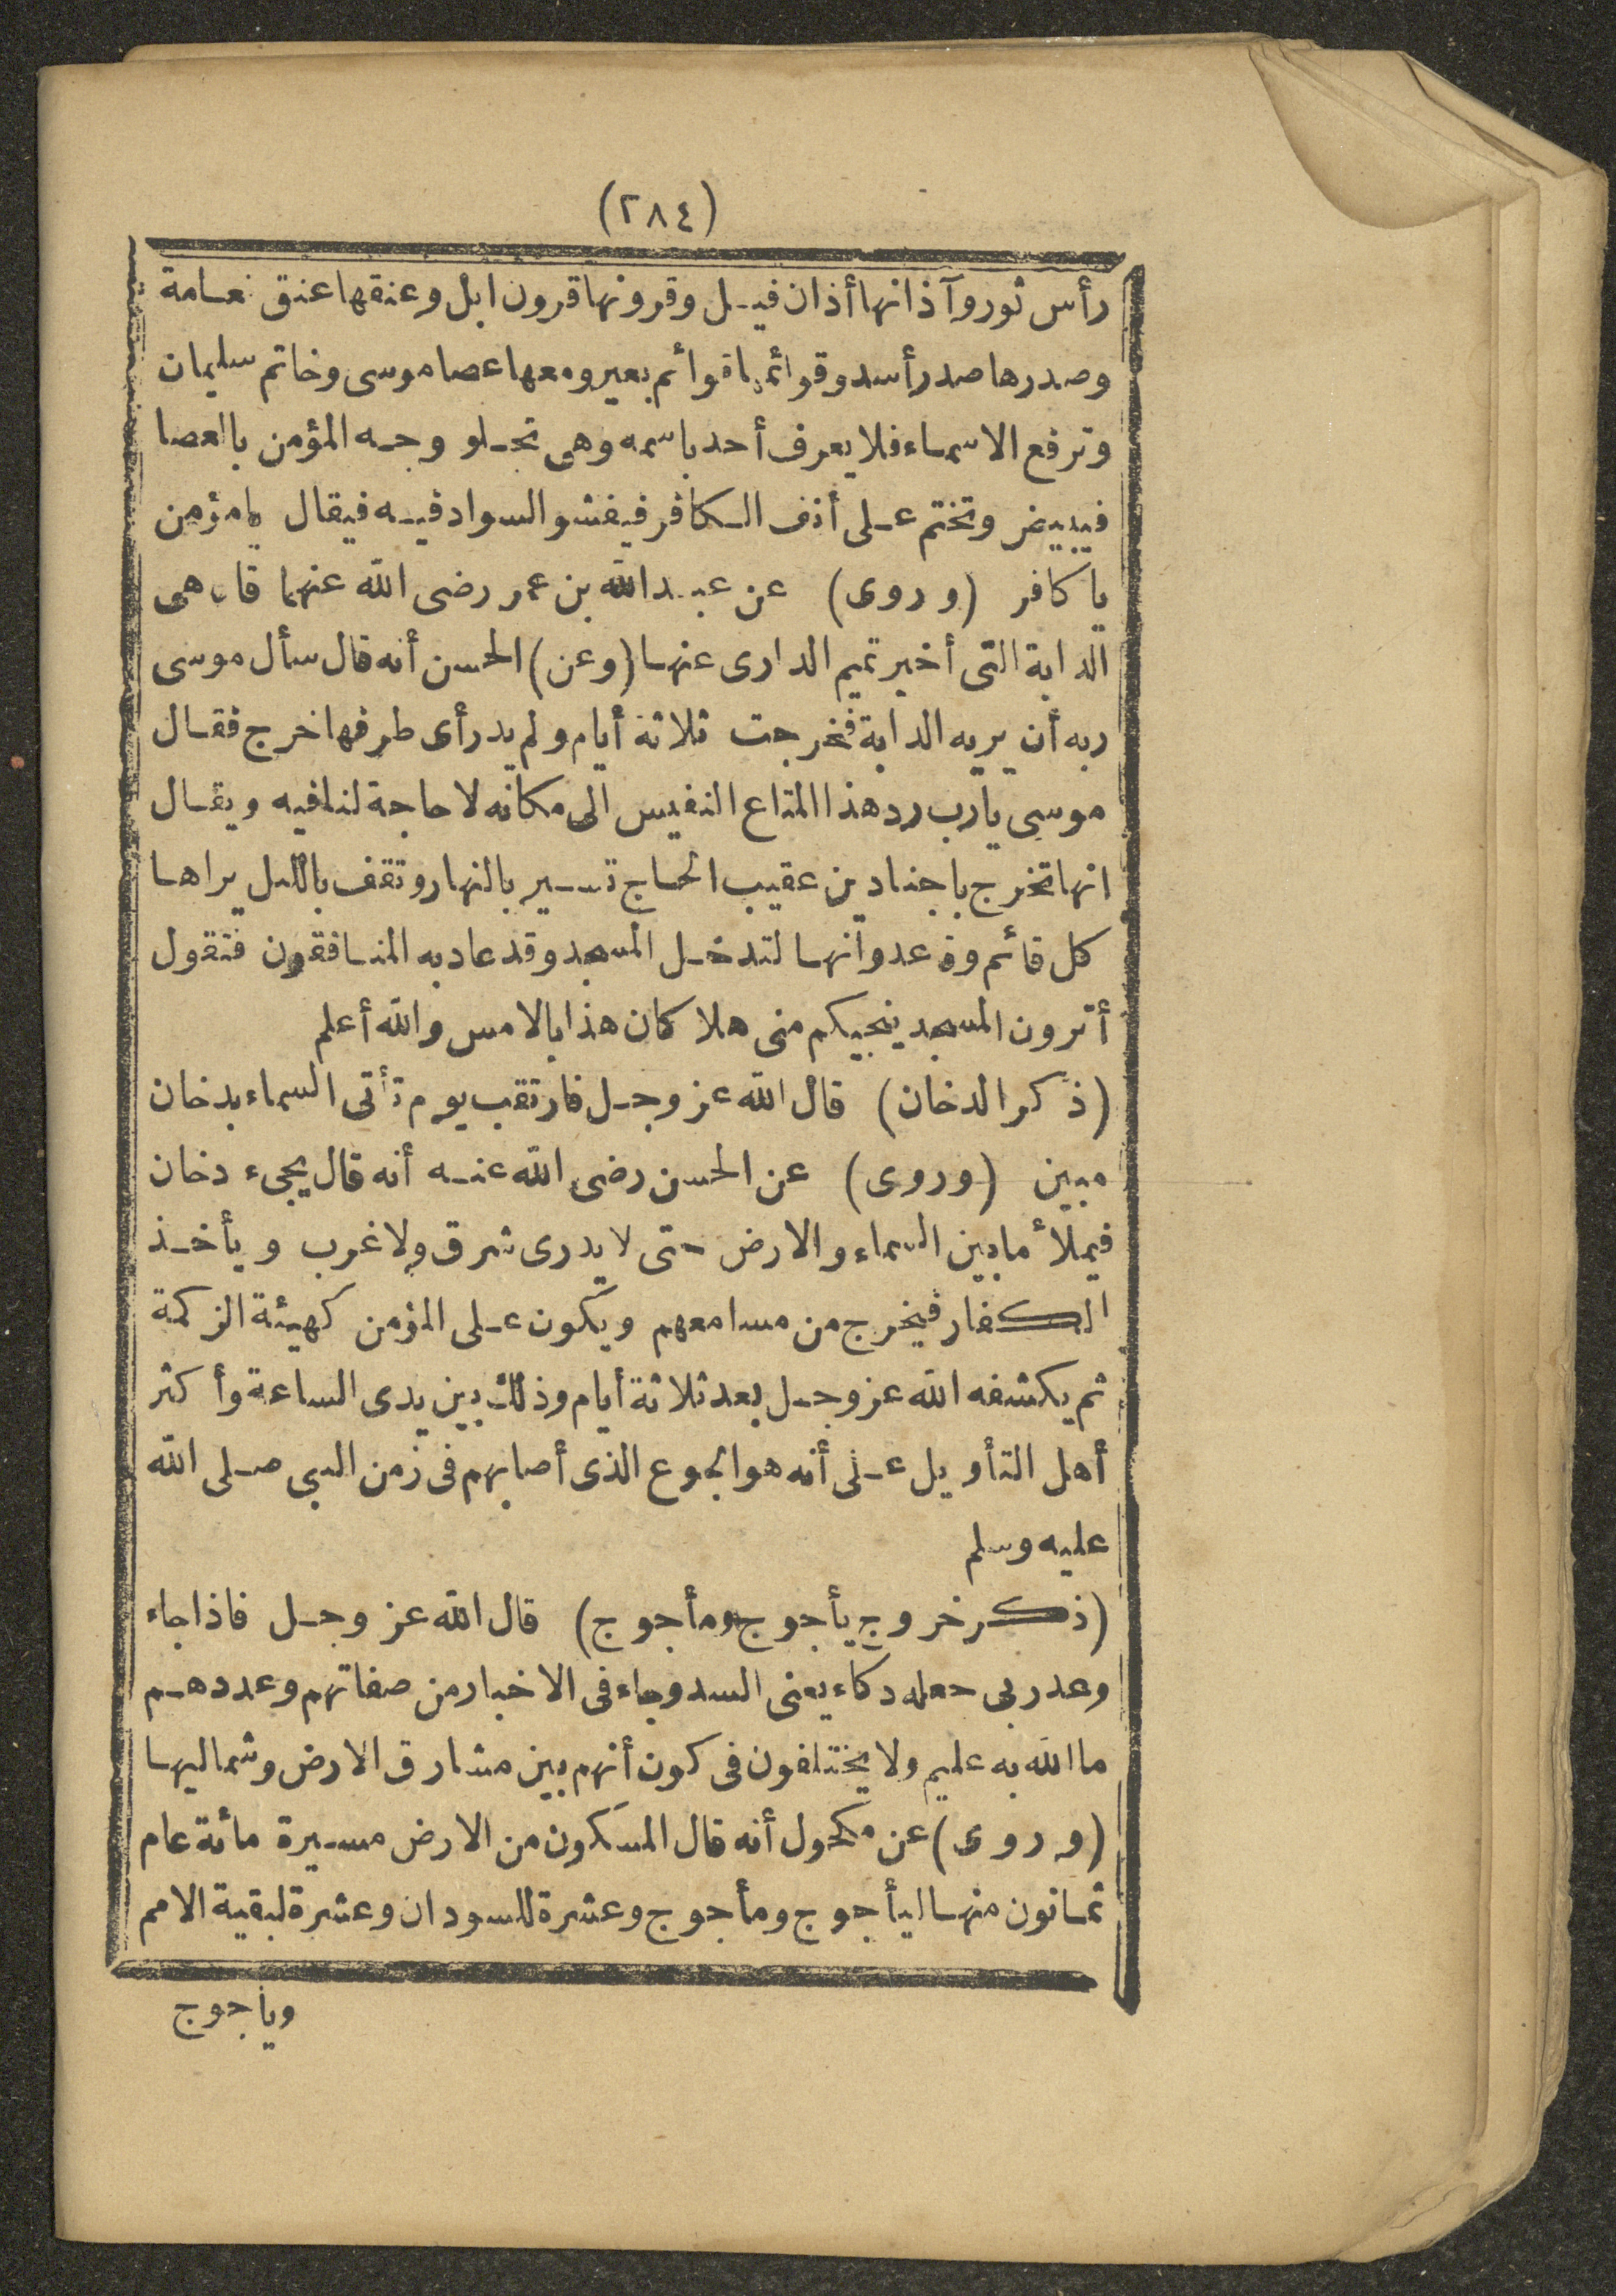 (٢٨٤)
رأس ثور وآذانها أذان فيل وقرونها قرون ابل وعنقها عنق نعامة
وصدرها صدر أسد وقوائمها قوائم بعير ومعها عصا موسى وخاتم سليمان
وترفع الاسماء فلا يعرف أحد باسمه وهى تجلو وجه المؤمن بالعصا
فيبيض وتختم على أنف الكافر فيفشو السواد فيه فيقال يا مؤمن
يا كافر (وروى) عن عبد الله بن عمر رضى الله عنهما قال هى
الدابة التى أخبر تميم الدارى عنها (وعن) الحسن أنه قال سأل موسى
ربه أن يريه الدابة فخرجت ثلاثة أيام ولم يدر أى طرفها خرج فقال
موسى يارب رد هذا المتاع النفيس الى مكانه لا حاجة لنا فيه ويقال
انها تخرج باجنادين عقيب الحاج تسير بالنهار وتقف بالليل يراها
كل قائم وقاعد وانها لتدخل المسجد وقد عاد به المنافقون فتقول
أترون المسجد ينجيكم منى هلا كان هذا بالامس والله أعلم
(ذكر الدخان) قال الله عز وجل فارتقب يوم تأتى السماء بدخان
مبين (وروى) عن الحسن رضى الله عنه أنه قال يجىء دخان
فيملأ ما بين السماء والارض حتى لا يدرى شرق ولا غرب ويأخذ
الكفار فيخرج من مسامعهم ويكون على المؤمن كهيئة الزكمة
ثم يكشفه الله عز وجل بعد ثلاثة أيام وذلك بين يدى الساعة وأكثر
أهل التأويل على أنه هو الجوع الذى أصابهم فى زمن النبى صلى الله
عليه وسلم
(ذكر خروج يأجوج ومأجوج) قال الله عز وجل فاذا جاء
وعد ربى جعله دكاء يعنى السد وجاء فى الاخبار من صفاتهم وعددهم
ما الله به عليم ولا يختلفون فى كون أنهم بين مشارق الارض وشماليها
(وروى) عن مكحول أنه قال المسكون من الارض مسيرة مائة عام
ثمانون منها ليأجوج ومأجوج وعشرة للسودان وعشرة لبقية الامم
ويأجوج